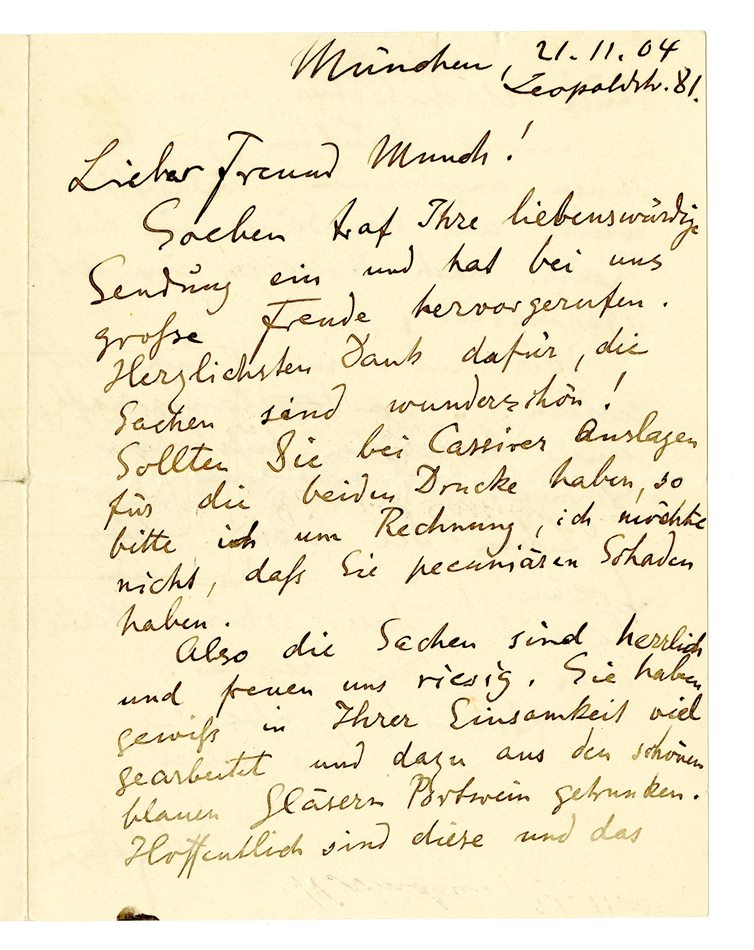 München, 21.11.04
Leopoldstr. 81.
Lieber Freund Munch!
Soeben traf Ihre liebenswürdige
Sendung ein und hat bei uns
große Freude hervorgerufen.
Herzlichsten Dank dafür, die
Sachen sind wunderschön!
Sollten Sie bei Cassirer Auslagen
für die beiden Drucke haben, so
bitte ich um Rechnung, ich möchte
nicht, daß Sie pecuniären Schaden
haben.
Also die Sachen sind herrlich
und freuen uns riesig. Sie haben
gewiß in Ihrer Einsamkeit viel
gearbeitet und dazu aus den schönen
blauen Gläsern Portwein getrunken.
Hoffentlich sind diese und das